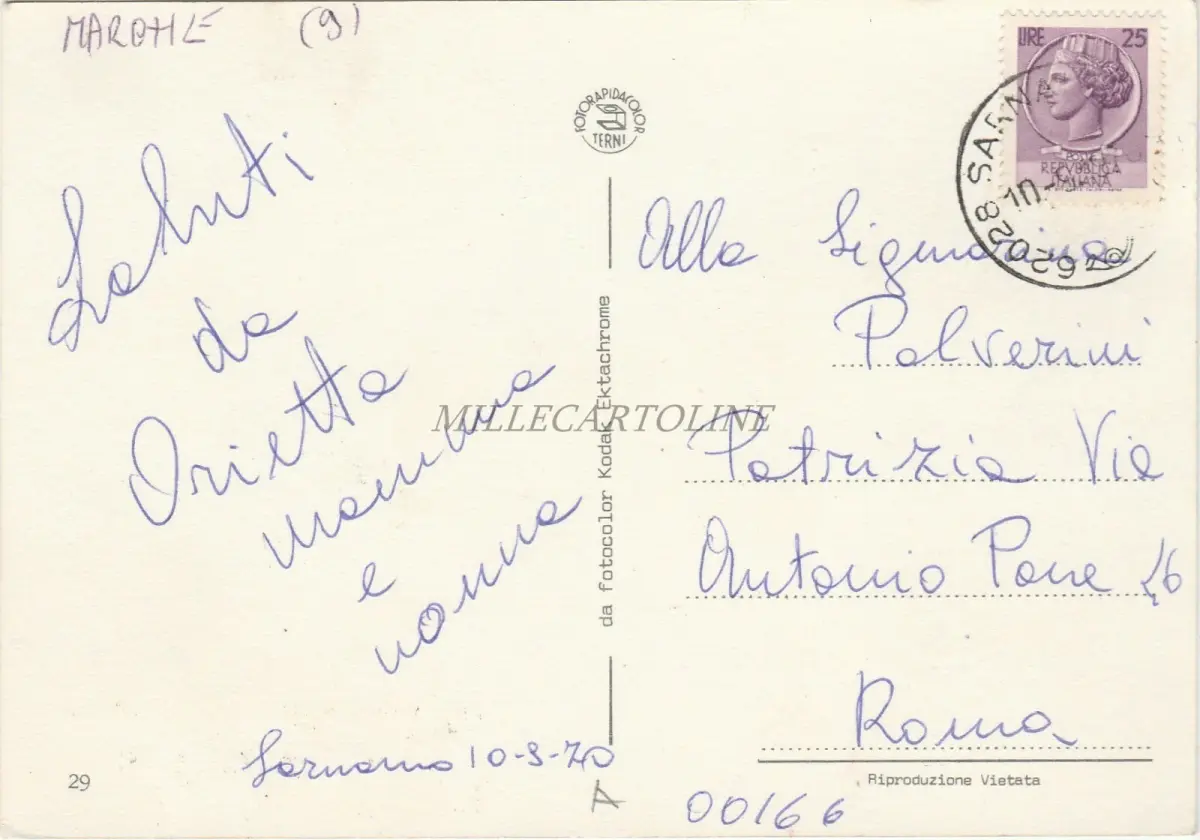 MARCHE (9)
Saluti
da
Orietta
mamma
e
nonna
Sarnano 10-9-70
29
FOTORAPIDACOLOR
TERNI
da fotocolor Kodak Ektachrome
MILLECARTOLINE
LIRE 25
POSTE
REPVBBLICA
ITALIANA
62028 SARNA
10
Alla Signorina
Polverini
Patrizia Via
Antonio Pane 16
Roma
Riproduzione Vietata
00166